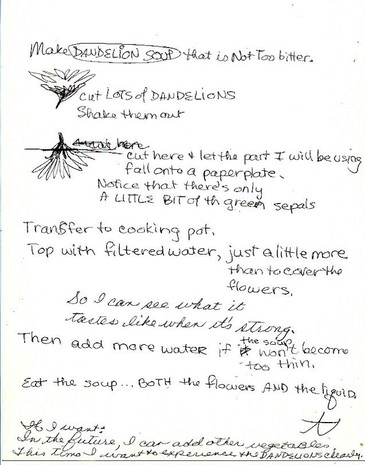 Make DANDELION SOUP that is Not Too bitter.
cut LOTS of DANDELIONS
Shake them out
cut here & let the part I will be using
fall onto a paperplate.
Notice that there's only
A LITTLE BIT of th green sepals
Transfer to cooking pot.
Top with filtered water, just a little more
than to cover the
flowers.
So I can see what it
tastes like when it's strong.
Then add more water if the soup won't become
too thin.
Eat the soup... BOTH the flowers AND the liquid.
If I want:
In the future, I can add other vegetables.
This time I want to experience the DANDELIONS clearly.